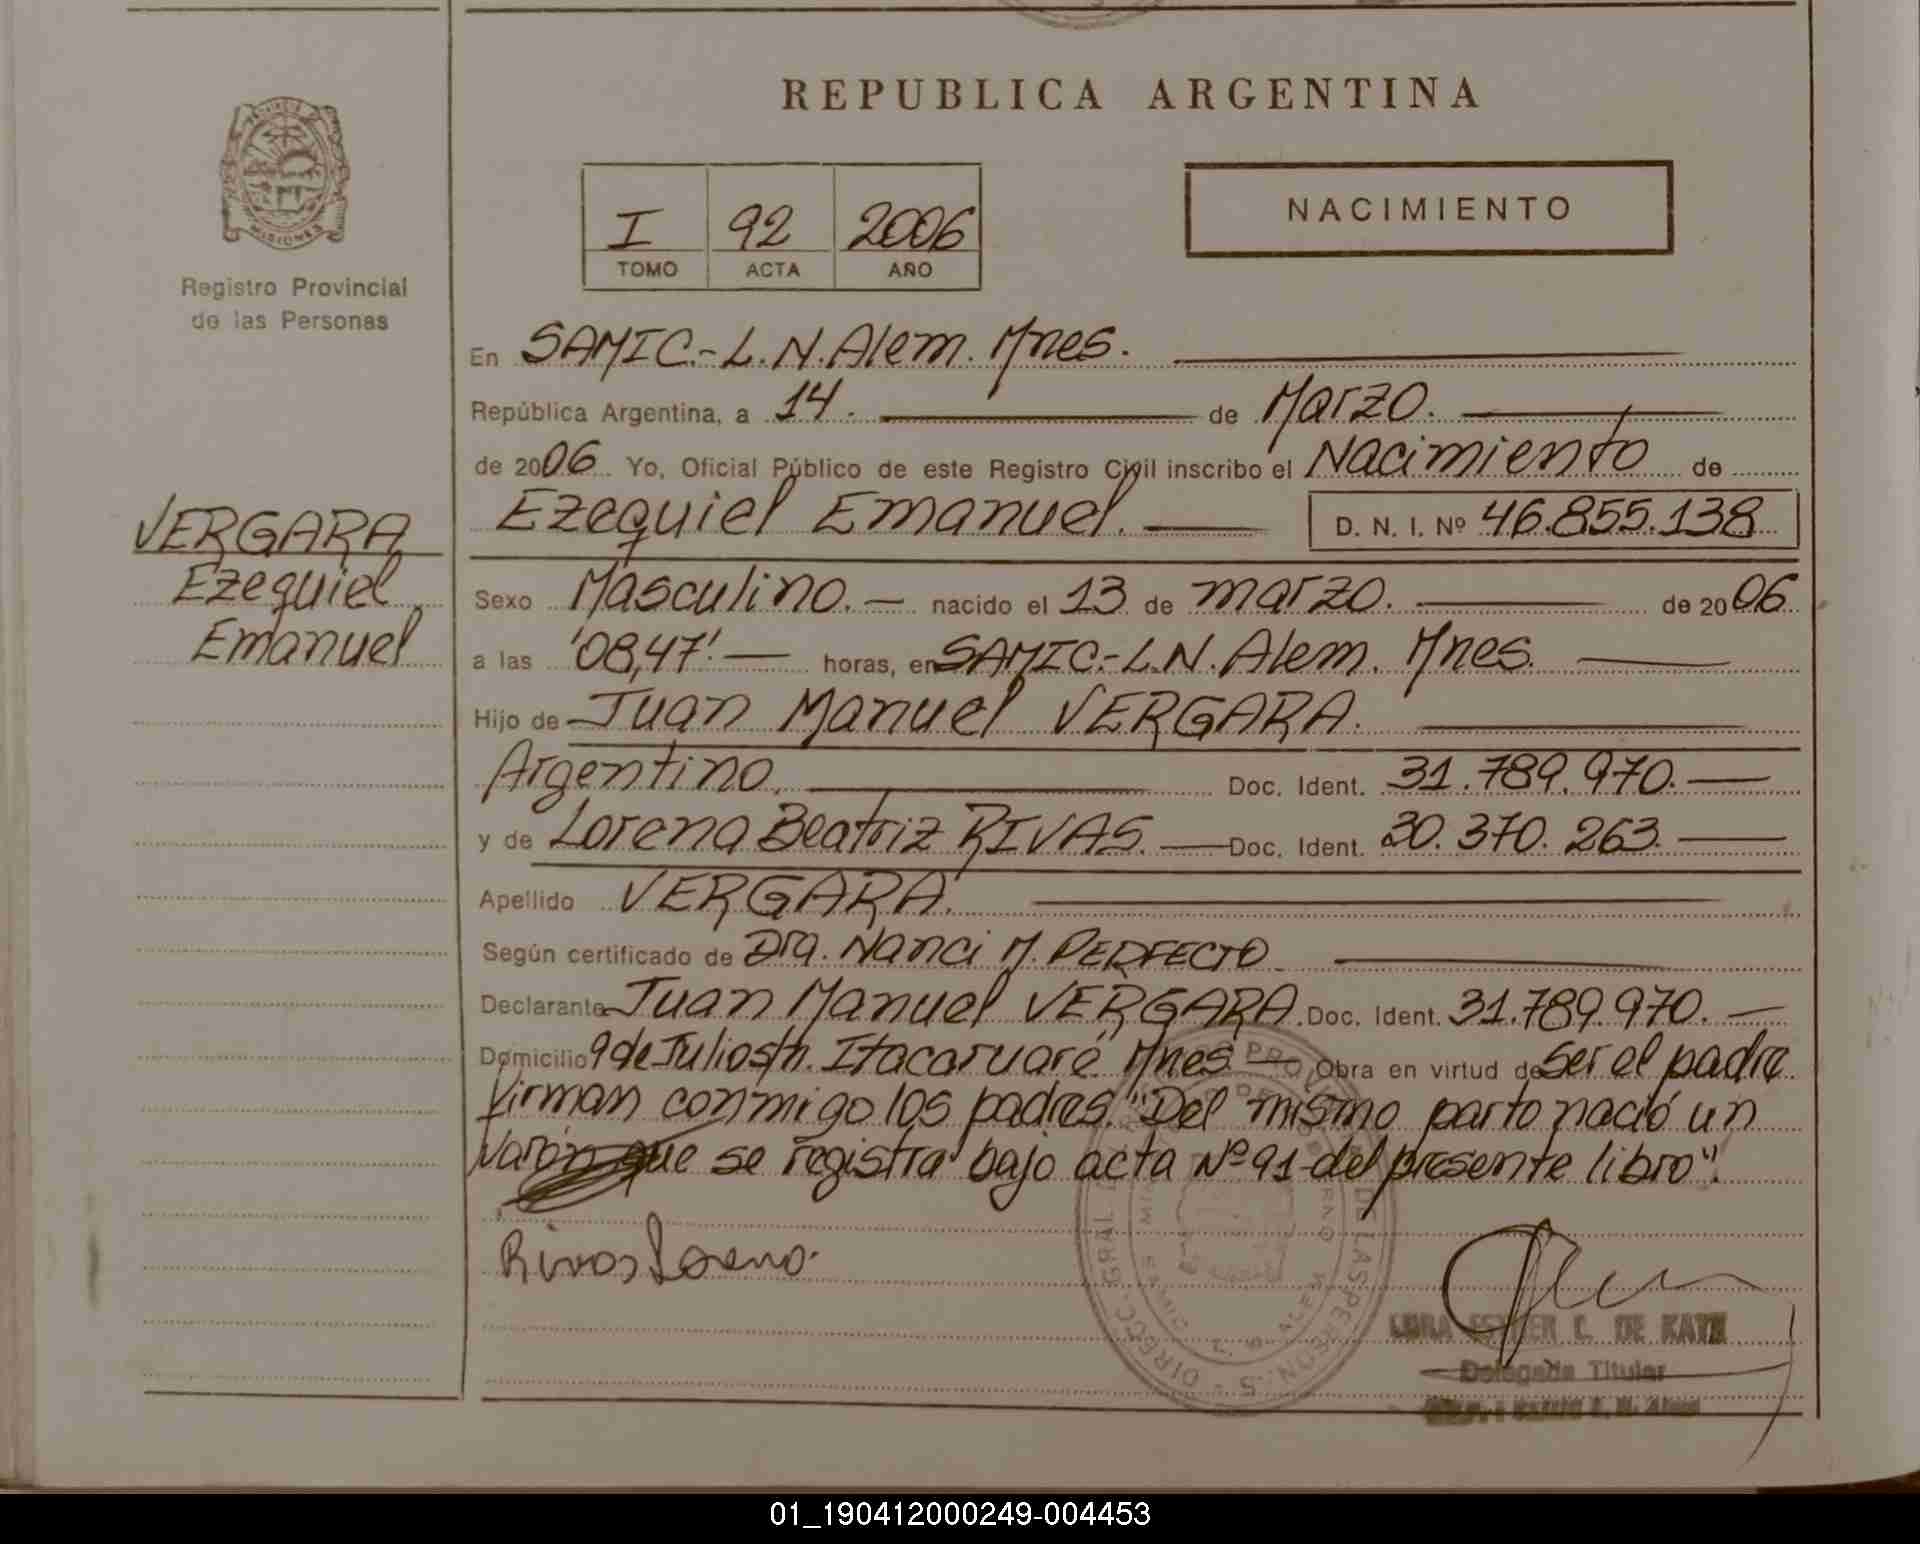 REPUBLICA ARGENTINA
MISIONES
Registro Provincial
de las Personas
I 92 2006
TOMO ACTA AÑO
NACIMIENTO
En SAMIC.-L.N.Alem. Mnes.
República Argentina, a 14. de Marzo.
de 2006 Yo, Oficial Público de este Registro Civil inscribo el Nacimiento de
Ezequiel Emanuel. D. N. I. Nº 46.855.138
VERGARA
Ezequiel
Emanuel
Sexo Masculino. nacido el 13 de marzo. de 2006
a las '08,47' horas, en SAMIC.-L.N. Alem. Mnes.
Hijo de Juan Manuel VERGARA.
Argentino. Doc. Ident. 31.789.970.
y de Lorena Beatriz RIVAS. Doc. Ident. 30.370.263.
Apellido VERGARA.
Según certificado de Dra. Nanci M. PERFECTO
Declarante Juan Manuel VERGARA. Doc. Ident. 31.789.970.
Domicilio 9 de Julio s/n. Itacaruaré Mnes Obra en virtud de Ser el padre.
Firman conmigo los padres. "Del mismo parto nació un
varón que se registra bajo acta Nº 91 del presente libro".
Rivas Lorena.
ESTHER C. DE
Delegada Titular
01_190412000249-004453